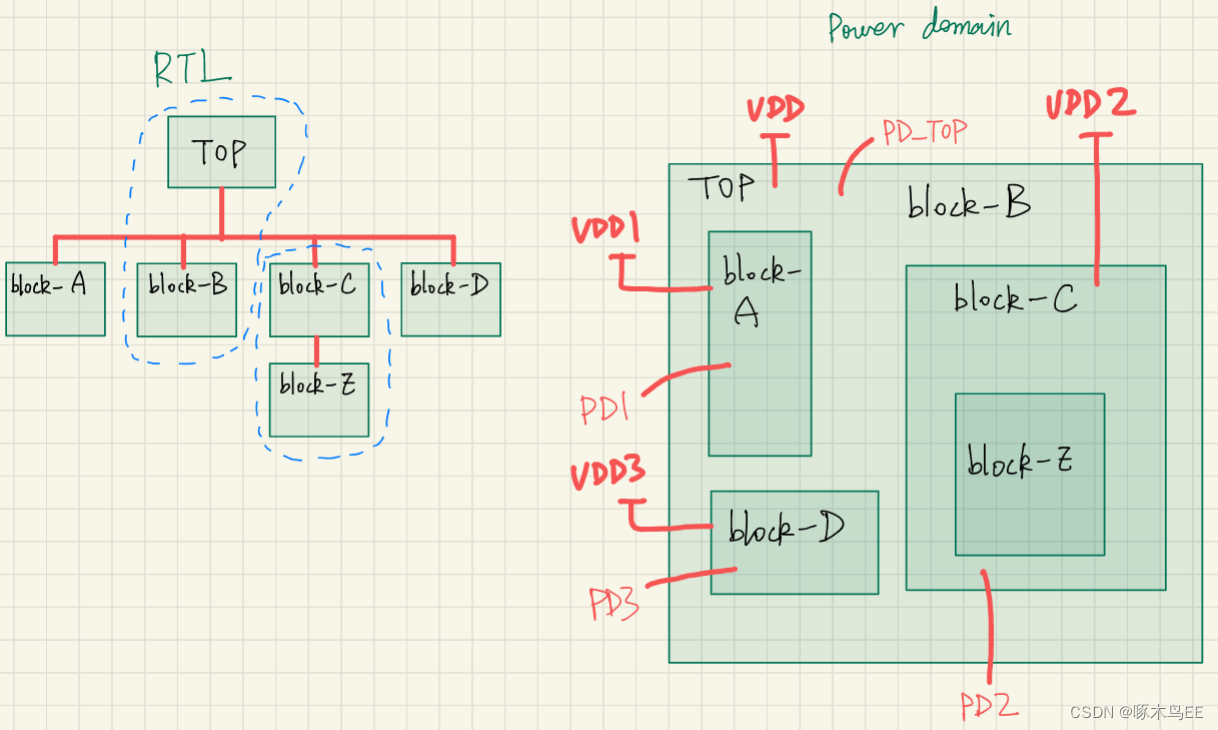 RTL
TOP
block-A
block-B
block-C
block-D
block-Z
Power domain
VDD
VDD2
PD_TOP
TOP
block-B
VDD1
block-
A
block-C
PD1
block-Z
VDD3
block-D
PD3
PD2
CSDN @啄木鸟EE